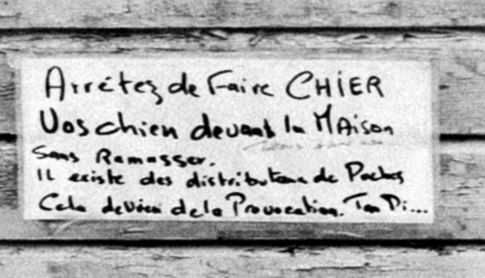 Arrêtez de Faire CHIER
Vos chien devant la MAison
Sans Ramasser.
Il existe des distributeurs de Poches
Cela devien de la Provocation. Tan Di...